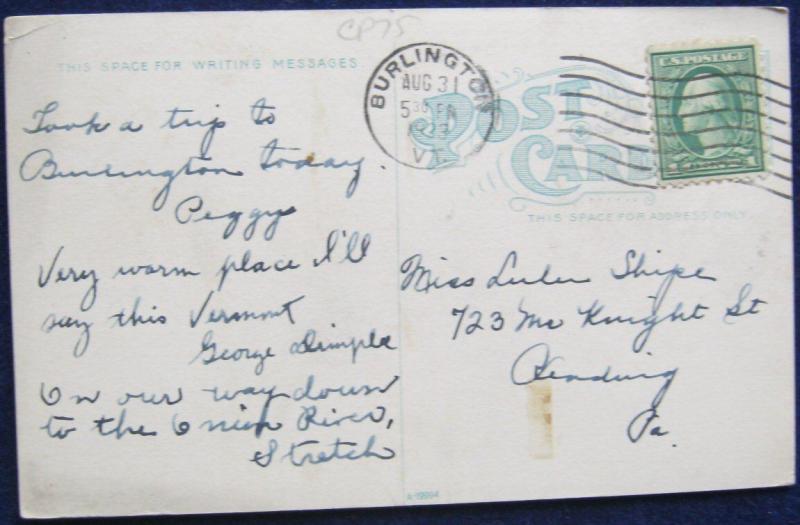 CP75
THIS SPACE FOR WRITING MESSAGES
Took a trip to
Burlington today.
Peggy
Very warm place I'll
say this Vermont
George Dimple
On our way down
to the Onion River,
Stretch
BURLINGTON
AUG 31
5 30 PM
VT.
POST
CARD
U.S. POSTAGE
THIS SPACE FOR ADDRESS ONLY
Miss Lulu Shipe
723 Mc Knight St
Reading
Pa.